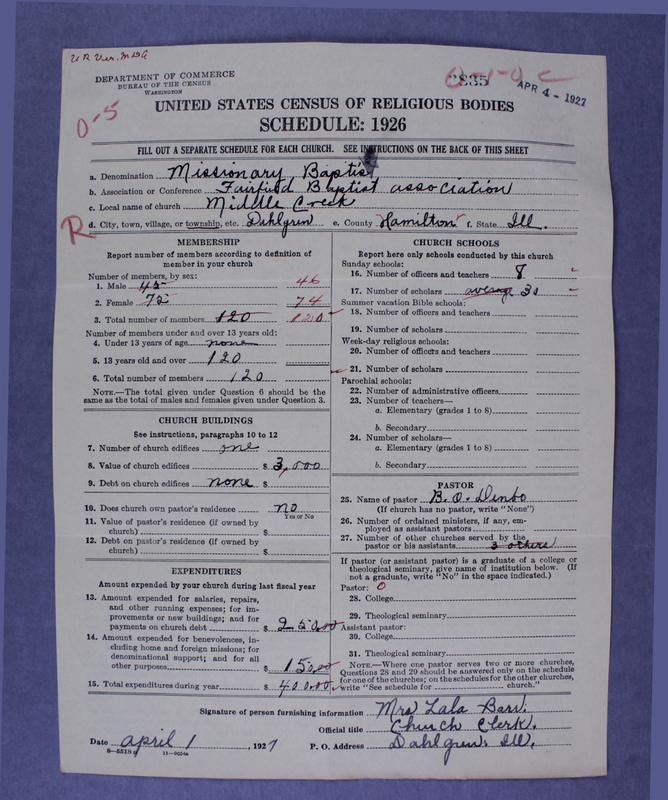 U R Ver. M D G
DEPARTMENT OF COMMERCE
BUREAU OF THE CENSUS
WASHINGTON
0-1-0 C
2835
APR 4 - 1927
0-5
UNITED STATES CENSUS OF RELIGIOUS BODIES
SCHEDULE: 1926
FILL OUT A SEPARATE SCHEDULE FOR EACH CHURCH. SEE INSTRUCTIONS ON THE BACK OF THIS SHEET
a. Denomination Missionary Baptist
b. Association or Conference Fairfield Baptist association
c. Local name of church Middle Creek
R d. City, town, village, or township, etc. Dahlgren e. County Hamilton f. State Ill.
MEMBERSHIP
Report number of members according to definition of
member in your church
Number of members, by sex:
1. Male 45 46
2. Female 75 74
3. Total number of members 120 120
Number of members under and over 13 years old:
4. Under 13 years of age none
5. 13 years old and over 120
6. Total number of members 120
NOTE.—The total given under Question 6 should be the
same as the total of males and females given under Question 3.
CHURCH BUILDINGS
See instructions, paragraphs 10 to 12
7. Number of church edifices one
8. Value of church edifices $ 3,000
9. Debt on church edifices none $
10. Does church own pastor's residence no
Yes or No
11. Value of pastor's residence (if owned by
church) $
12. Debt on pastor's residence (if owned by
church) $
EXPENDITURES
Amount expended by your church during last fiscal year
13. Amount expended for salaries, repairs,
and other running expenses; for im-
provements or new buildings; and for
payments on church debt $ 250.00
14. Amount expended for benevolences, in-
cluding home and foreign missions; for
denominational support; and for all
other purposes $ 150.00
15. Total expenditures during year $ 400.00
CHURCH SCHOOLS
Report here only schools conducted by this church
Sunday schools:
16. Number of officers and teachers 8
17. Number of scholars average 30
Summer vacation Bible schools:
18. Number of officers and teachers
19. Number of scholars
Week-day religious schools:
20. Number of officers and teachers
21. Number of scholars
Parochial schools:
22. Number of administrative officers
23. Number of teachers—
a. Elementary (grades 1 to 8)
b. Secondary
24. Number of scholars—
a. Elementary (grades 1 to 8)
b. Secondary
PASTOR
25. Name of pastor B. O. Denbo
(If church has no pastor, write "None")
26. Number of ordained ministers, if any, em-
ployed as assistant pastors
27. Number of other churches served by the
pastor or his assistants 3 others
If pastor (or assistant pastor) is a graduate of a college or
theological seminary, give name of institution below. (If
not a graduate, write "No" in the space indicated.)
Pastor: 0
28. College
29. Theological seminary
Assistant pastor:
30. College
31. Theological seminary
NOTE.—Where one pastor serves two or more churches,
Questions 28 and 29 should be answered only on the schedule
for one of the churches; on the schedules for the other churches,
write "See schedule for church."
Signature of person furnishing information Mrs Lala Barr.
Official title Church Clerk.
Date april 1, 1927 P. O. Address Dahlgren, Ill.
8-5518 11-9054